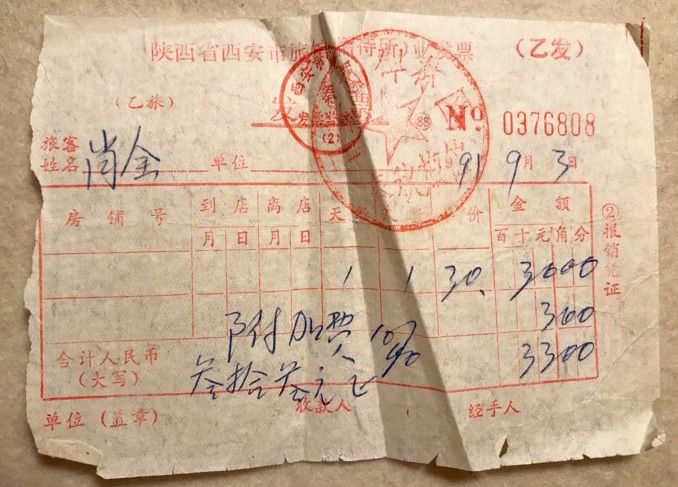 陕西省西安市旅馆(招待所)业发票
(乙发)
(乙旅)
发
No 0376808
旅客姓名 尚全 单位 91 9月3日
房铺号 到店 离店 天 价 金额
月 日 月 日 百十元角分
1 1 30. 3000
附加费 10% 300
合计人民币(大写) 叁拾叁元正 3300
单位(盖章) 收款人 经手人
②报销凭证